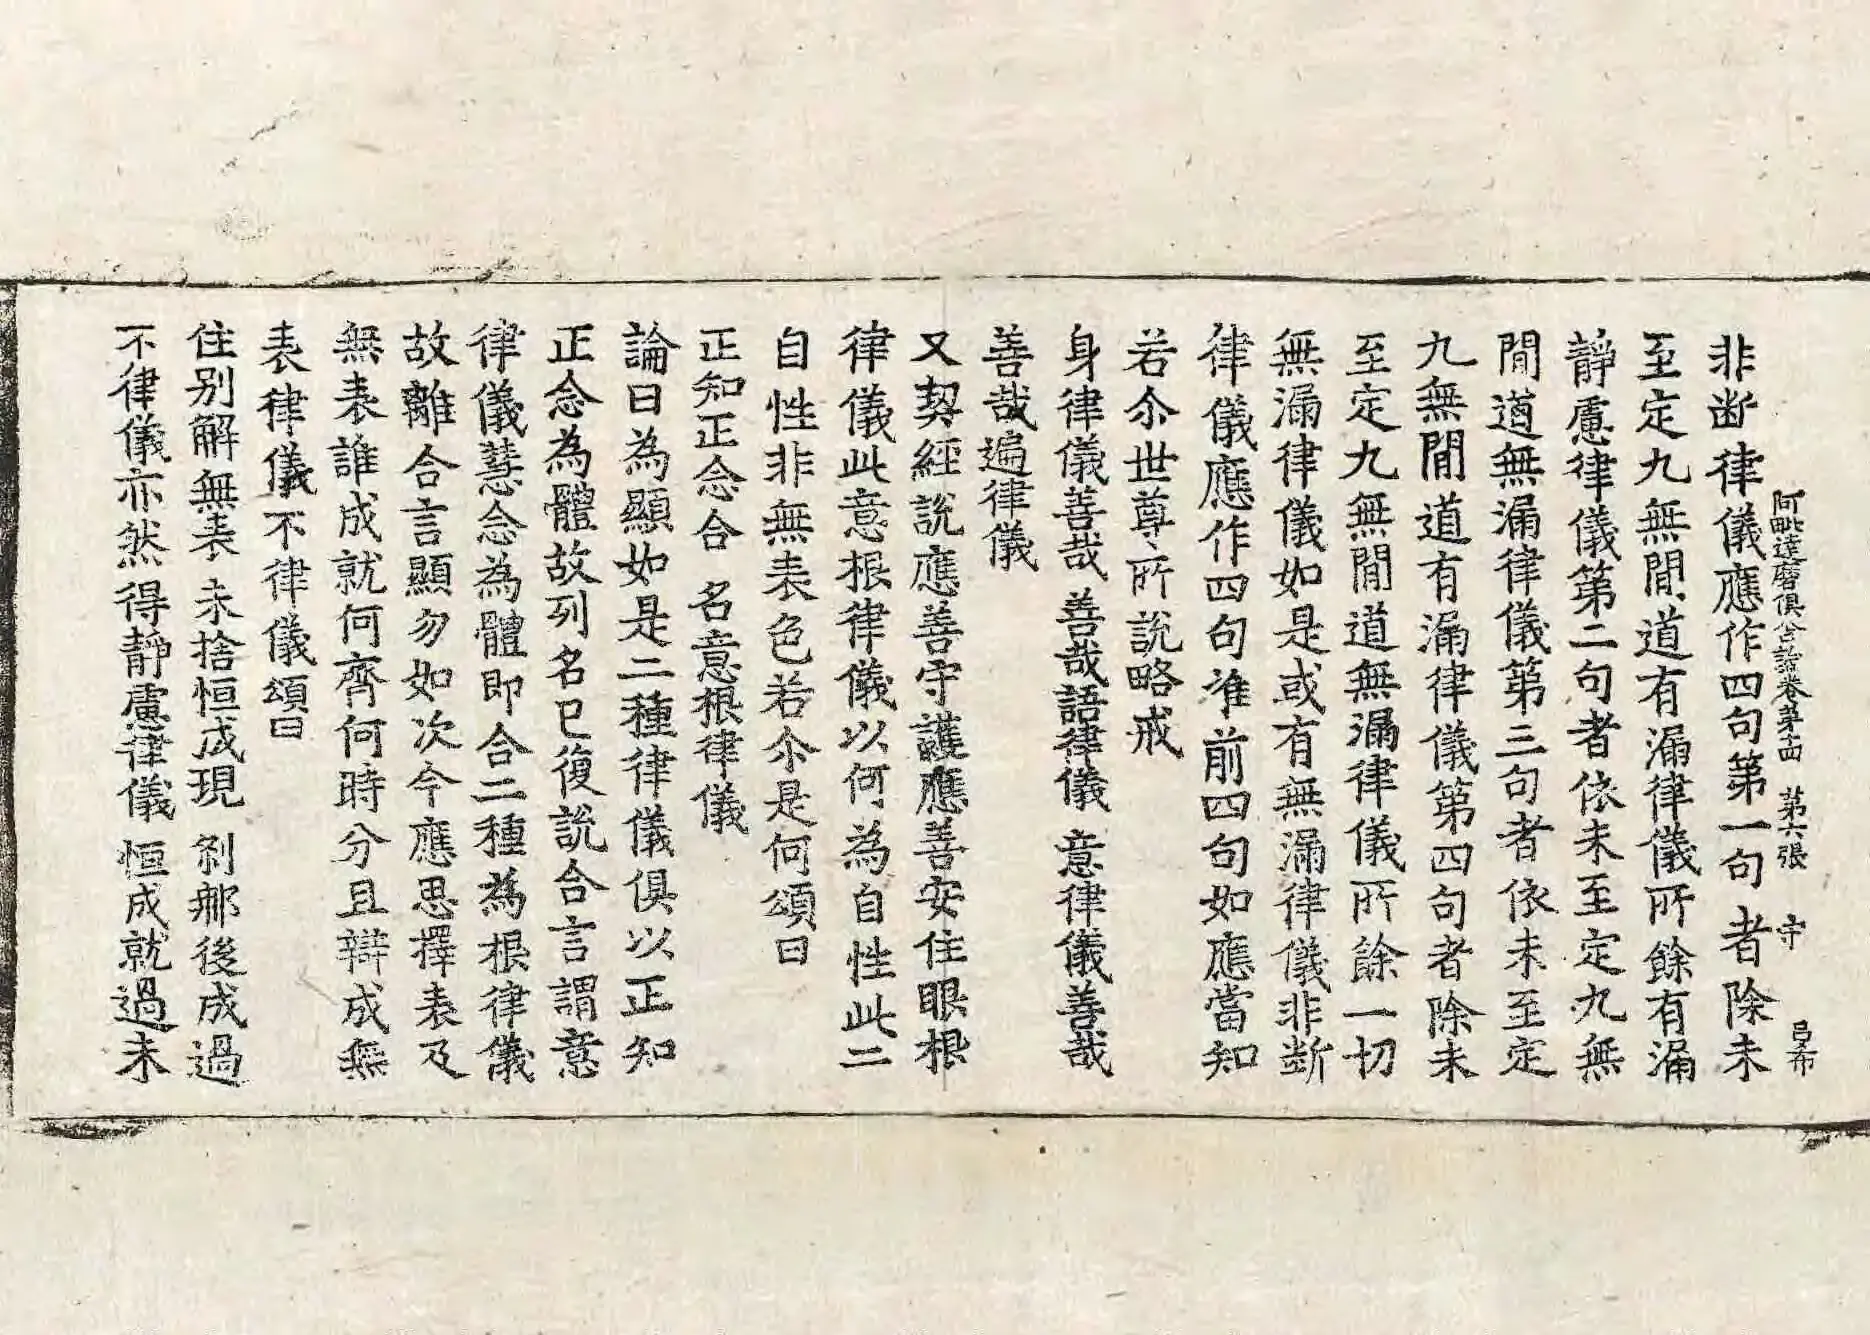 阿毗達磨俱舍論卷第十四 第六張 守 呂布
非断律儀應作四句第一句者除未
至定九無閒道有漏律儀所餘有漏
靜慮律儀第二句者依未至定九無
閒道無漏律儀第三句者依未至定
九無閒道有漏律儀第四句者除未
至定九無閒道無漏律儀所餘一切
無漏律儀如是或有無漏律儀非斷
律儀應作四句准前四句如應當知
若尒世尊所說略戒
身律儀善哉 善哉語律儀 意律儀善哉
善哉遍律儀
又契經說應善守護應善安住眼根
律儀此意根律儀以何為自性此二
自性非無表色若尒是何頌曰
正知正念合 名意根律儀
論曰為顯如是二種律儀俱以正知
正念為體故列名已復說合言謂意
律儀慧念為體即合二種為根律儀
故離合言顯勿如次今應思擇表及
無表誰成就何齊何時分且辯成無
表律儀不律儀頌曰
住別解無表 未捨恒成現 刹那後成過
不律儀亦然 得靜慮律儀 恒成就過未